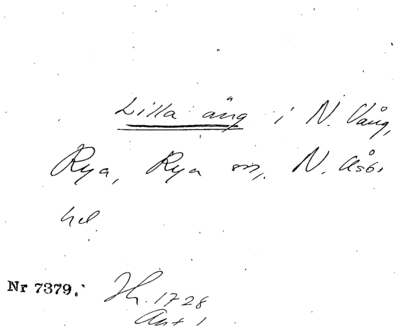 Lilla äng i N. Vång,
Rya, Rya sn, N. Åsb.
hd.
Nr 7379. Jh. 1728
Akt 1